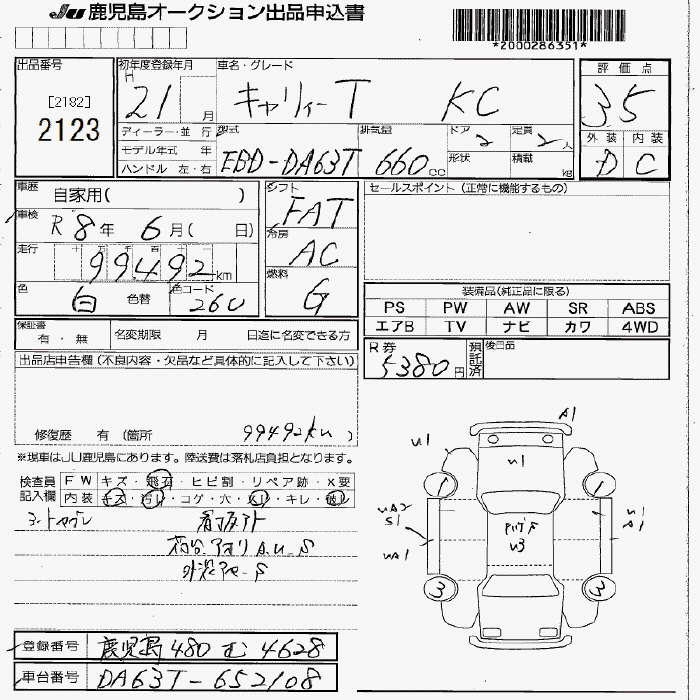 JU 鹿児島オークション出品申込書
*2000286351*
出品番号
[2182]
2123
初年度登録年月
H
21 月
車名・グレード
キャリィーT KC
評価点
3.5
外装 内装
D C
ディーラー・並 行
モデル年式 年
ハンドル 左・右
型式
EBD-DA63T
排気量
660 cc
ドア
2
形状
定員
2 人
積載
kg
車歴
自家用( )
車検
R 8年 6月( 日)
走行
十 万 千 百 十 一
99492 km
色
白 色替
色コード
260
シフト
FAT
冷房
AC
燃料
G
セールスポイント (正常に機能するもの)
装備品(純正品に限る)
PS PW AW SR ABS
エアB TV ナビ カワ 4WD
保証書
有・無
名変期限 月 日迄に名変できる方
R券
5380円
預託済
後日品
出品店申告欄(不良内容・欠品など具体的に記入して下さい)
修復歴 有(箇所 99492km )
※現車はJU鹿児島にあります。陸送費は落札店負担となります。
検査員
記入欄
FW キズ・飛石・ヒビ割・リペア跡・X要
内装 キズ・汚レ・コゲ・穴・スレ・キレ・破レ
A1
U1
U1
UA2
S1
UA1
U1
A1
U3
1
1
3
3
登録番号 鹿児島 480 む 4628
車台番号 DA63T-652108